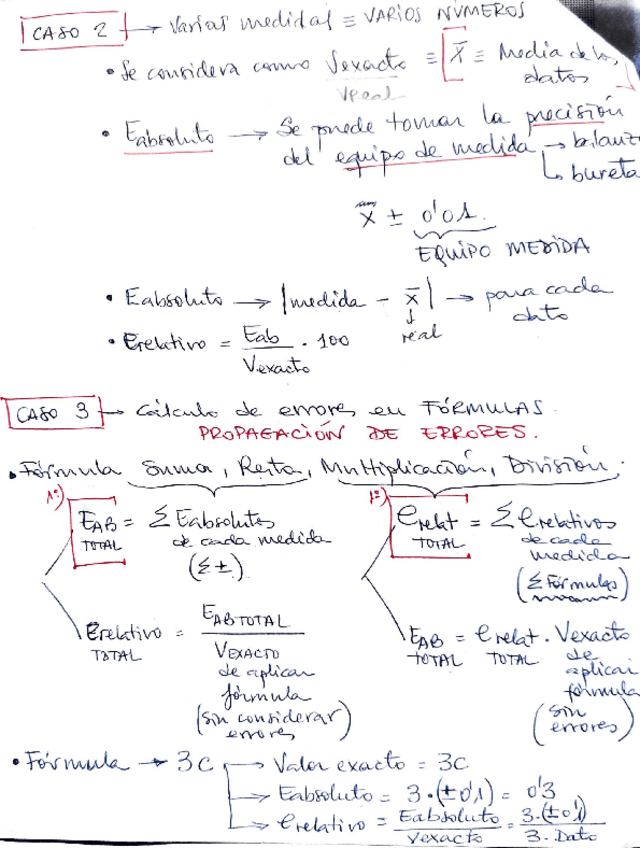 CASO 2 → Varias medidas ≡ VARIOS NÚMEROS
• Se considera como Vexacto ≡ [ x̄ ≡ Media de los
Vreal datos
• Eabsoluto → Se puede tomar la precisión
del equipo de medida → balanz
↳ bureta
x̄ ± 0'01.
EQUIPO MEDIDA
• Eabsoluto → |medida - x̄| → para cada
↓ dato
real
• Erelativo = Eab / Vexacto · 100
CASO 3 → Cálculo de errores en FÓRMULAS.
PROPAGACIÓN DE ERRORES.
• Fórmula Suma, Resta, Multiplicación, División.
1º) 1º)
EAB = Σ Eabsolutos erelat = Σ erelativos
TOTAL de cada medida TOTAL de cada
(Σ ±) medida
(Σ Fórmulas)
Erelativo = EAB TOTAL / VEXACTO EAB = erelat . Vexacto
TOTAL TOTAL TOTAL
de aplicar de aplicar
fórmula fórmula
(sin considerar errores) (sin errores)
• Fórmula → 3C → Valor exacto = 3C
→ Eabsoluto = 3·(±0'1) = 0'3
→ erelativo = Eabsoluto / Vexacto = 3·(±0'1) / 3·Dato